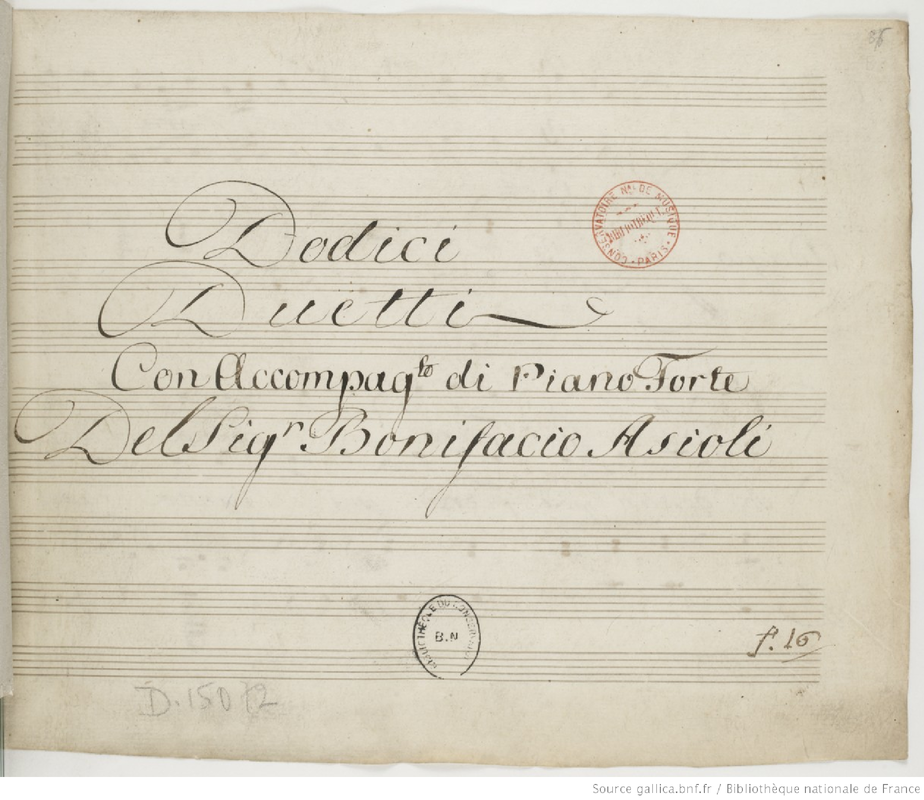 86
Dodici
CONSERVATOIRE Nal. DE MUSIQUE
BIBLIOTHEQUE
• PARIS •
Duetti
Con Accompagto di Piano Forte
Del Sigr. Bonifacio Asioli
BIBLIOTHÈQUE DU CONSERVATOIRE
B.N
f. 16
D.150
Source gallica.bnf.fr / Bibliothèque nationale de France